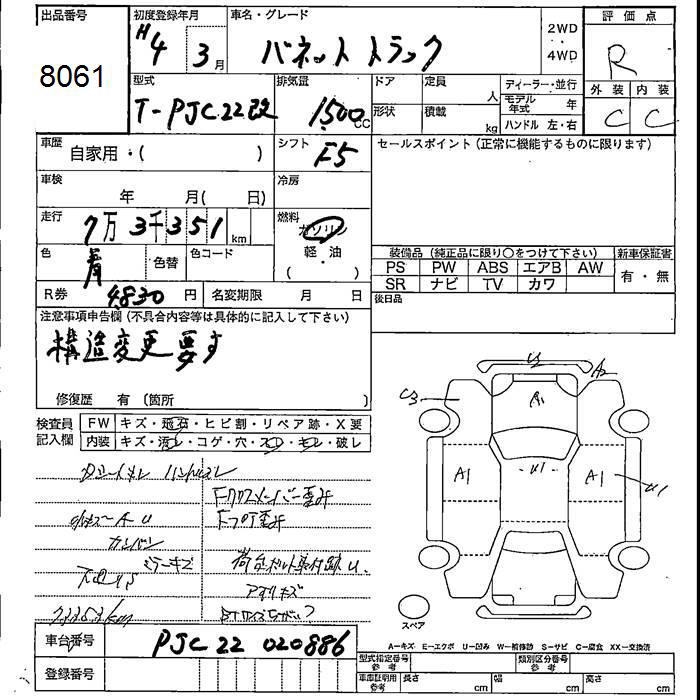 出品番号
8061
初度登録年月
H4 3月
車名・グレード
バネットトラック
2WD
・
4WD
評価点
R
外装 内装
C C
型式
T-PJC22改
排気量
1500 CC
ドア
形状
定員 人
積載 kg
ディーラー・並行
モデル年式 年
ハンドル 左・右
車歴
自家用・( )
シフト
F5
セールスポイント(正常に機能するものに限ります)
車検
年 月( 日)
冷房
走行
7万3千351 km
燃料
ガソリン
軽・油
・( )
色
青
色替
色コード
装備品(純正品に限り○をつけて下さい)
新車保証書
PS PW ABS エアB AW
有・無
SR ナビ TV カワ
R券 4830 円
名変期限 月 日
後日品
注意事項申告欄(不具合内容等は具体的に記入して下さい)
構造変更要す
修復歴 有(箇所 )
検査員
記入欄
FW キズ・飛石・ヒビ割・リペア跡・X要
内装 キズ・汚レ・コゲ・穴・スレ・キレ・破レ
Fクロスメンバー歪み
カンバン
荷台ボルト取付跡U
U3
A2
C3
A1
U1
A1
A1
U1
スペア
A-キズ E-エクボ U-凹み W-補修跡 S-サビ C-腐食 XX-交換済
車台番号
PJC22 020886
登録番号
型式指定番号
参考
類別区分番号
参考
車庫証明用
参考
長さ cm
幅 cm
高さ cm